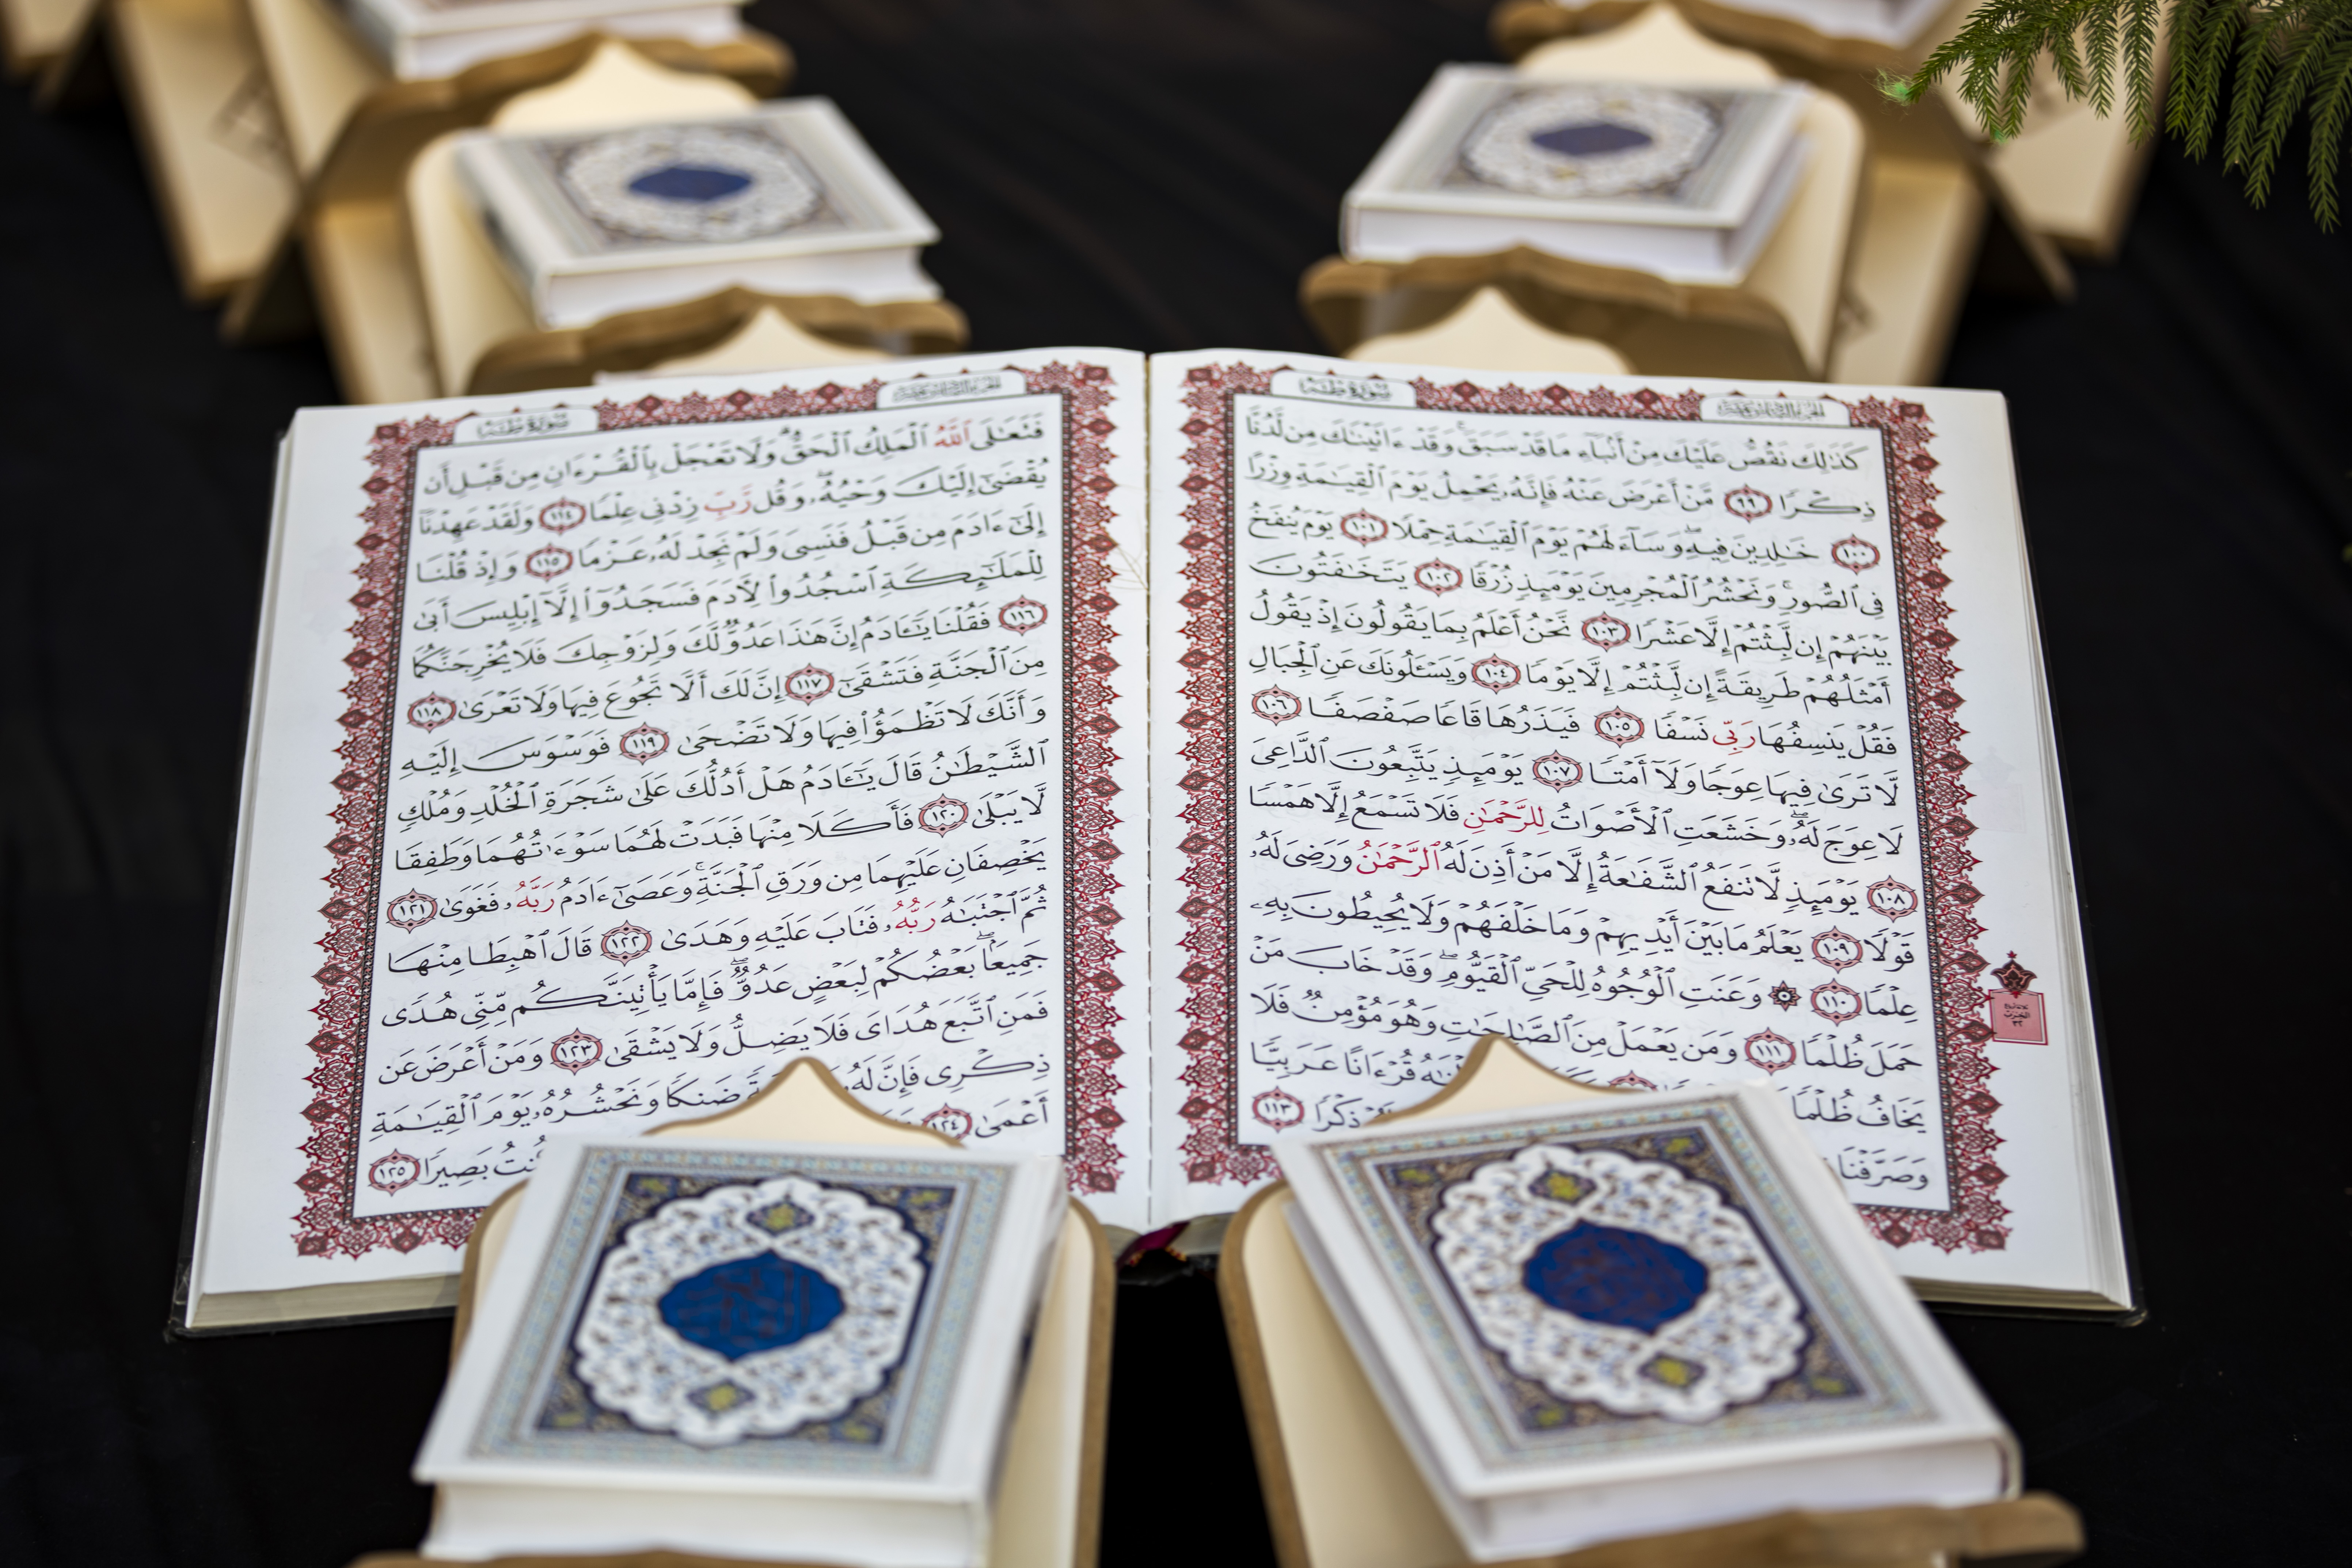 سُورَةُ طه
الجزء السادس عشر
كَذَٰلِكَ نَقُصُّ عَلَيْكَ مِنْ أَنۢبَآءِ مَا قَدْ سَبَقَ ۚ وَقَدْ ءَاتَيْنَٰكَ مِن لَّدُنَّا
ذِكْرًا ٩٩ مَّنْ أَعْرَضَ عَنْهُ فَإِنَّهُۥ يَحْمِلُ يَوْمَ ٱلْقِيَٰمَةِ وِزْرًا
١٠٠ خَٰلِدِينَ فِيهِ ۖ وَسَآءَ لَهُمْ يَوْمَ ٱلْقِيَٰمَةِ حِمْلًا ١٠١ يَوْمَ يُنفَخُ
فِى ٱلصُّورِ ۚ وَنَحْشُرُ ٱلْمُجْرِمِينَ يَوْمَئِذٍ زُرْقًا ١٠٢ يَتَخَٰفَتُونَ
بَيْنَهُمْ إِن لَّبِثْتُمْ إِلَّا عَشْرًا ١٠٣ نَّحْنُ أَعْلَمُ بِمَا يَقُولُونَ إِذْ يَقُولُ
أَمْثَلُهُمْ طَرِيقَةً إِن لَّبِثْتُمْ إِلَّا يَوْمًا ١٠٤ وَيَسْـَٔلُونَكَ عَنِ ٱلْجِبَالِ
فَقُلْ يَنسِفُهَا رَبِّى نَسْفًا ١٠٥ فَيَذَرُهَا قَاعًا صَفْصَفًا ١٠٦
لَّا تَرَىٰ فِيهَا عِوَجًا وَلَآ أَمْتًا ١٠٧ يَوْمَئِذٍ يَتَّبِعُونَ ٱلدَّاعِىَ
لَا عِوَجَ لَهُۥ ۖ وَخَشَعَتِ ٱلْأَصْوَاتُ لِلرَّحْمَٰنِ فَلَا تَسْمَعُ إِلَّا هَمْسًا
١٠٨ يَوْمَئِذٍ لَّا تَنفَعُ ٱلشَّفَٰعَةُ إِلَّا مَنْ أَذِنَ لَهُ ٱلرَّحْمَٰنُ وَرَضِىَ لَهُۥ
قَوْلًا ١٠٩ يَعْلَمُ مَا بَيْنَ أَيْدِيهِمْ وَمَا خَلْفَهُمْ وَلَا يُحِيطُونَ بِهِۦ
عِلْمًا ١١٠ ۞ وَعَنَتِ ٱلْوُجُوهُ لِلْحَىِّ ٱلْقَيُّومِ ۖ وَقَدْ خَابَ مَنْ
حَمَلَ ظُلْمًا ١١١ وَمَن يَعْمَلْ مِنَ ٱلصَّٰلِحَٰتِ وَهُوَ مُؤْمِنٌ فَلَا
يَخَافُ ظُلْمًا قُرْءَانًا عَرَبِيًّا
وَصَرَّفْنَا ذِكْرًا ١١٣
سُورَةُ طه
الجزء السادس عشر
فَتَعَٰلَى ٱللَّهُ ٱلْمَلِكُ ٱلْحَقُّ ۗ وَلَا تَعْجَلْ بِٱلْقُرْءَانِ مِن قَبْلِ أَن
يُقْضَىٰٓ إِلَيْكَ وَحْيُهُۥ ۖ وَقُل رَّبِّ زِدْنِى عِلْمًا ١١٤ وَلَقَدْ عَهِدْنَآ
إِلَىٰٓ ءَادَمَ مِن قَبْلُ فَنَسِىَ وَلَمْ نَجِدْ لَهُۥ عَزْمًا ١١٥ وَإِذْ قُلْنَا
لِلْمَلَٰٓئِكَةِ ٱسْجُدُوا۟ لِءَادَمَ فَسَجَدُوٓا۟ إِلَّآ إِبْلِيسَ أَبَىٰ
١١٦ فَقُلْنَا يَٰٓـَٔادَمُ إِنَّ هَٰذَا عَدُوٌّ لَّكَ وَلِزَوْجِكَ فَلَا يُخْرِجَنَّكُمَا
مِنَ ٱلْجَنَّةِ فَتَشْقَىٰٓ ١١٧ إِنَّ لَكَ أَلَّا تَجُوعَ فِيهَا وَلَا تَعْرَىٰ ١١٨
وَأَنَّكَ لَا تَظْمَؤُا۟ فِيهَا وَلَا تَضْحَىٰ ١١٩ فَوَسْوَسَ إِلَيْهِ
ٱلشَّيْطَٰنُ قَالَ يَٰٓـَٔادَمُ هَلْ أَدُلُّكَ عَلَىٰ شَجَرَةِ ٱلْخُلْدِ وَمُلْكٍ
لَّا يَبْلَىٰ ١٢٠ فَأَكَلَا مِنْهَا فَبَدَتْ لَهُمَا سَوْءَٰتُهُمَا وَطَفِقَا
يَخْصِفَانِ عَلَيْهِمَا مِن وَرَقِ ٱلْجَنَّةِ ۚ وَعَصَىٰٓ ءَادَمُ رَبَّهُۥ فَغَوَىٰ ١٢١
ثُمَّ ٱجْتَبَٰهُ رَبُّهُۥ فَتَابَ عَلَيْهِ وَهَدَىٰ ١٢٢ قَالَ ٱهْبِطَا مِنْهَا
جَمِيعًۢا ۖ بَعْضُكُمْ لِبَعْضٍ عَدُوٌّ ۖ فَإِمَّا يَأْتِيَنَّكُم مِّنِّى هُدًى
فَمَنِ ٱتَّبَعَ هُدَاىَ فَلَا يَضِلُّ وَلَا يَشْقَىٰ ١٢٣ وَمَنْ أَعْرَضَ عَن
ذِكْرِى فَإِنَّ لَهُۥ ضَنكًا وَنَحْشُرُهُۥ يَوْمَ ٱلْقِيَٰمَةِ
أَعْمَىٰ ١٢٤ كُنتُ بَصِيرًا ١٢٥